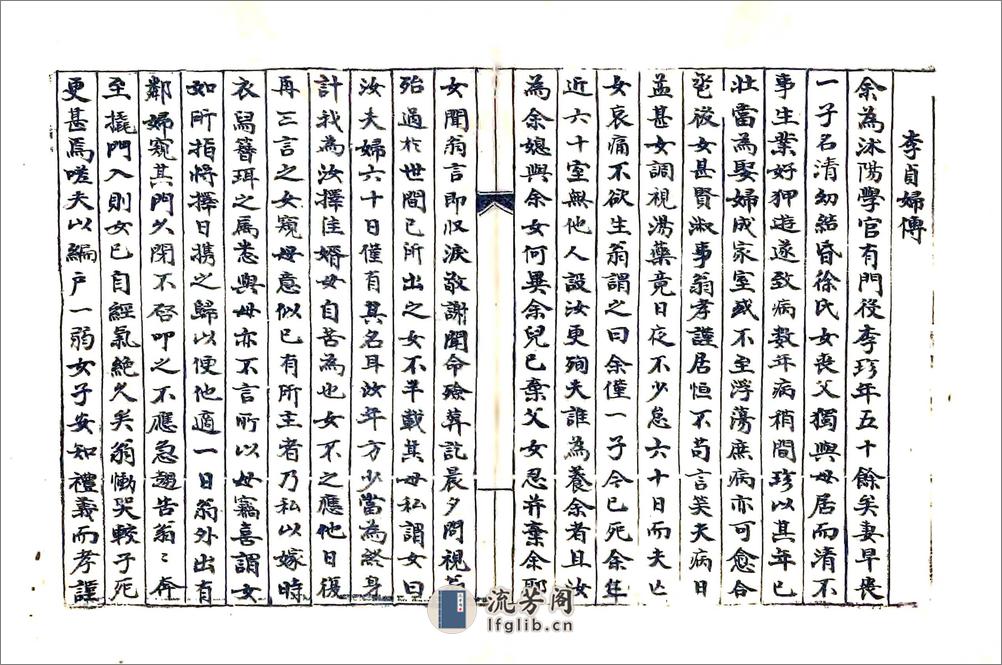 李貞婦傳
余為沭陽學官有門役李珍年五十餘矣妻早喪
一子名清幼結昏徐氏女喪父獨與母居而清不
事生業好狎遊遂致病数年病稍間珍以其年已
壯當為娶婦成家室或不至浮蕩庶病亦可愈合
巹後女甚賢淑事翁孝謹居恒不苟言笑夫病日
益甚女調視湯藥竟日夜不少怠六十日而夫亡
女哀痛不欲生翁謂之曰余僅一子今已死余年
近六十室無他人設汝更殉夫誰為養余者且汝
為余媳與余女何異余兒已棄父女忍并棄余耶
女聞翁言即收淚敬謝聞命殮葬訖晨夕問視翁
殆過於世間已所出之女不半載其母私謂女曰
汝夫婦六十日僅有其名耳汝年方少當為終身
計我為汝擇佳婿毋自苦為也女不之應他日復
再三言之女窺母意似已有所主者乃私以嫁時
衣舄簪珥之屬悉與母亦不言所以母竊喜謂女
如所指將擇日携之歸以便他適一日翁外出有
鄰婦窺其門久閉不啓叩之不應急趨告翁〻奔
至撬門入則女已自經氣絶久矣翁慟哭較子死
更甚焉嗟夫以編户一弱女子安知禮義而孝謹
流芳阁
lfglib.cn